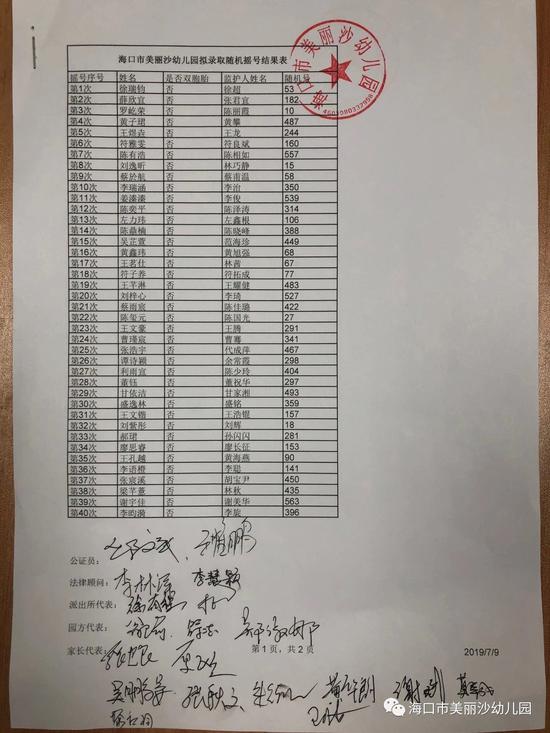 海口市美丽沙幼儿园拟录取随机摇号结果表
摇号序号 姓名 是否双胞胎 监护人姓名 随机号
第1次 徐瑞钧 否 徐超 53
第2次 薛欣宜 否 张君宜 182
第3次 罗屹荣 否 陈丽霞 10
第4次 黄子珺 否 黄攀 487
第5次 王煜垚 否 王龙 244
第6次 符雅雯 否 符良斌 160
第7次 陈有浩 否 陈相如 557
第8次 刘逸昕 否 林巧静 15
第9次 蔡於航 否 蔡甫温 58
第10次 李瑞涵 否 李治 350
第11次 姜溱溱 否 李俊 539
第12次 陈奕平 否 陈泽涛 314
第13次 左力玮 否 左鑫根 106
第14次 陈鼎楠 否 陈晓峰 388
第15次 吴芷萱 否 范海珍 449
第16次 黄鑫玮 否 黄旭强 68
第17次 王茗仕 否 林茜 67
第18次 符子养 否 符拓成 77
第19次 王芊淋 否 王耀健 483
第20次 刘梓心 否 李琦 527
第21次 蔡雨宸 否 陈佳璐 422
第22次 陈玺元 否 陈国光 27
第23次 王文豪 否 王腾 291
第24次 曹瑾宸 否 曹骞 341
第25次 张浩宇 否 代成萍 467
第26次 谭诗颖 否 余常霞 298
第27次 利雨宣 否 陈少玲 404
第28次 董钰 否 董祝华 297
第29次 甘依洁 否 甘家湘 493
第30次 盛逸林 否 盛铭 359
第31次 王文锴 否 王浩锟 157
第32次 刘紫彤 否 刘辉 18
第33次 郝珺 否 孙闪闪 281
第34次 廖思睿 否 廖长征 153
第35次 王孔越 否 黄海燕 90
第36次 李语橙 否 李聪 141
第37次 张宸溪 否 胡宝尹 450
第38次 梁芊薏 否 林秋 435
第39次 谢宇佳 否 谢美华 563
第40次 李昀漪 否 李旋 396
海口市美丽沙幼儿园
4601080332958
公证员:
法律顾问: 李慧颖
派出所代表:
园方代表:
家长代表:
第1页,共2页
2019/7/9
海口市美丽沙幼儿园